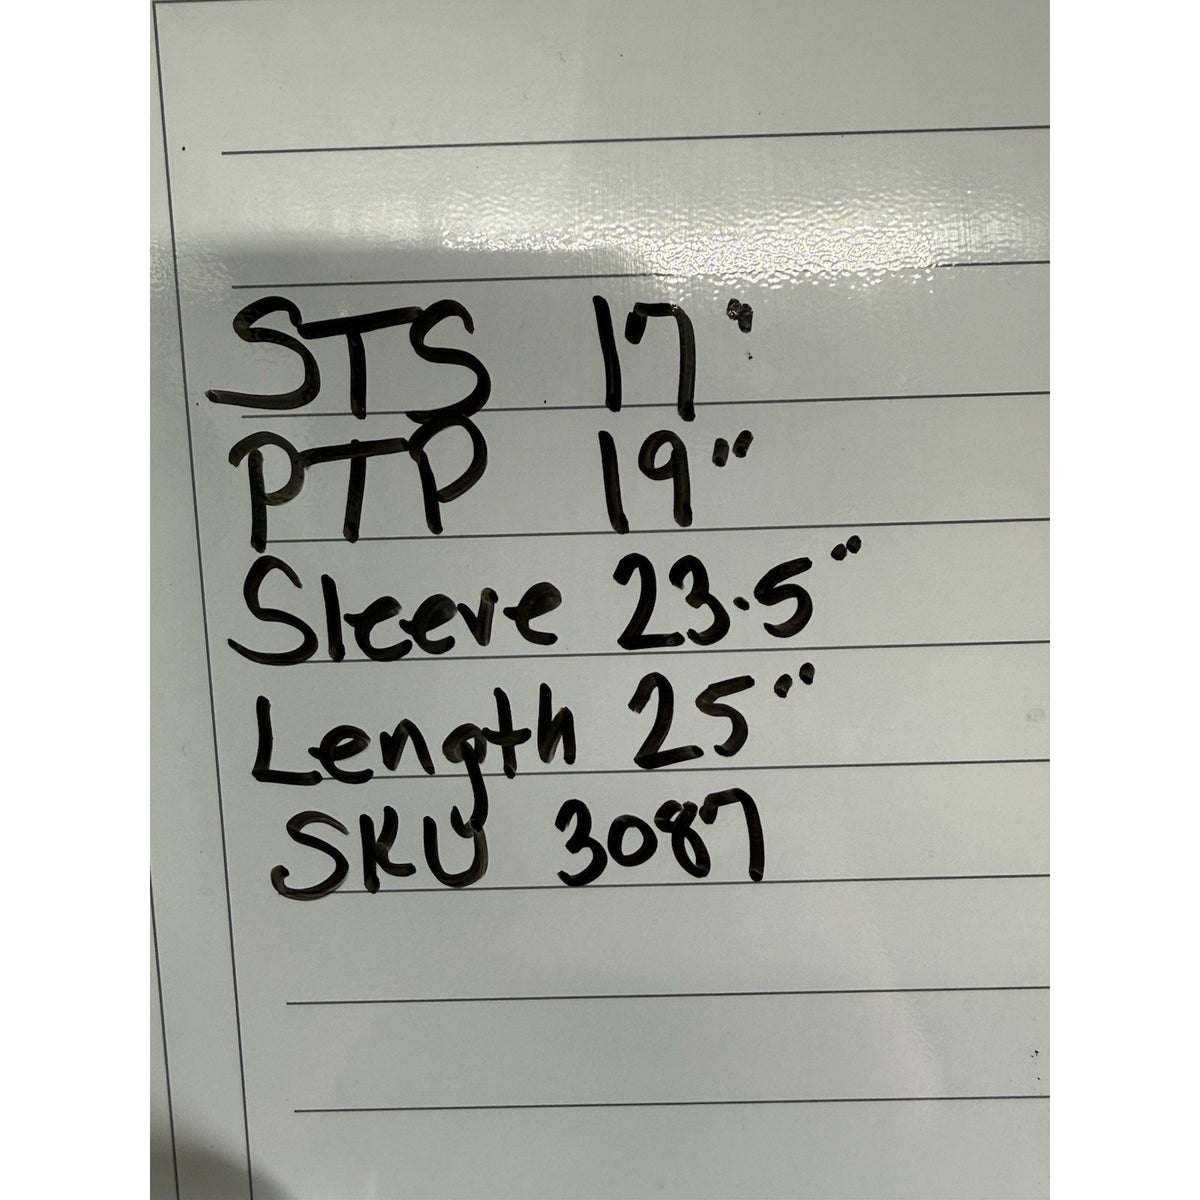 STS 17"
PTP 19"
Sleeve 23.5"
Length 25"
SKU 3087